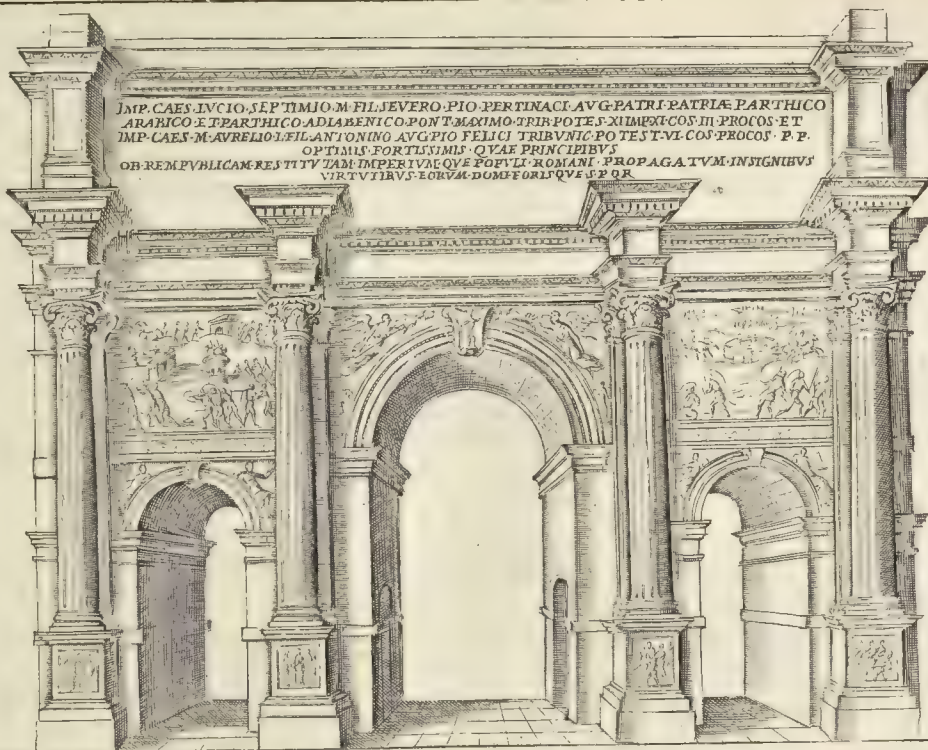 IMP·CAES·LVCIO·SEPTIMIO·M·FIL·SEVERO·PIO·PERTINACI·AVG·PATRI·PATRIÆ·PARTHICO
ARABICO·ET·PARTHICO·ADIABENICO·PONT·MAXIMO·TRIB·POTES·XI·IMP·XI·COS·III·PROCOS·ET
IMP·CAES·M·AVRELIO·L·FIL·ANTONINO AVG·PIO FELICI TRIBVNIC·POTEST·VI·COS·PROCOS·P·P·
OPTIMIS·FORTISSIMIS·QVAE PRINCIPIBVS
OB·REMPVBLICAM·RESTITVTAM·IMPERIVM·QVE POPVLI·ROMANI·PROPAGATVM·INSIGNIBVS
VIRTVTIBVS·EORVM·DOMI·FORISQVE·S·P·Q·R